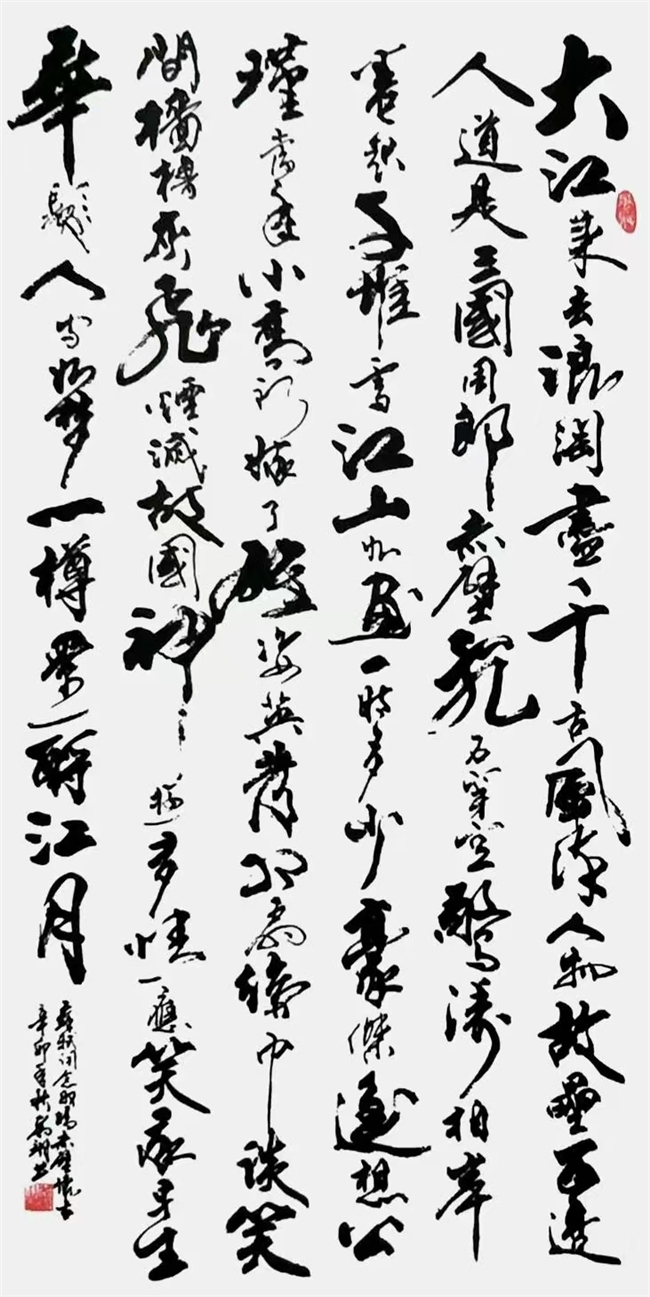 大江東去浪淘盡千古風流人物故壘西邊
人道是三國周郎赤壁亂石穿空驚濤拍岸
捲起千堆雪江山如畫一時多少豪傑遙想公
瑾當年小喬初嫁了雄姿英發羽扇綸巾談笑
間檣櫓灰飛煙滅故國神遊多情應笑我早生
華髮人間如夢一樽還酹江月
蘇軾詞念奴嬌赤壁懷古
辛卯年秋